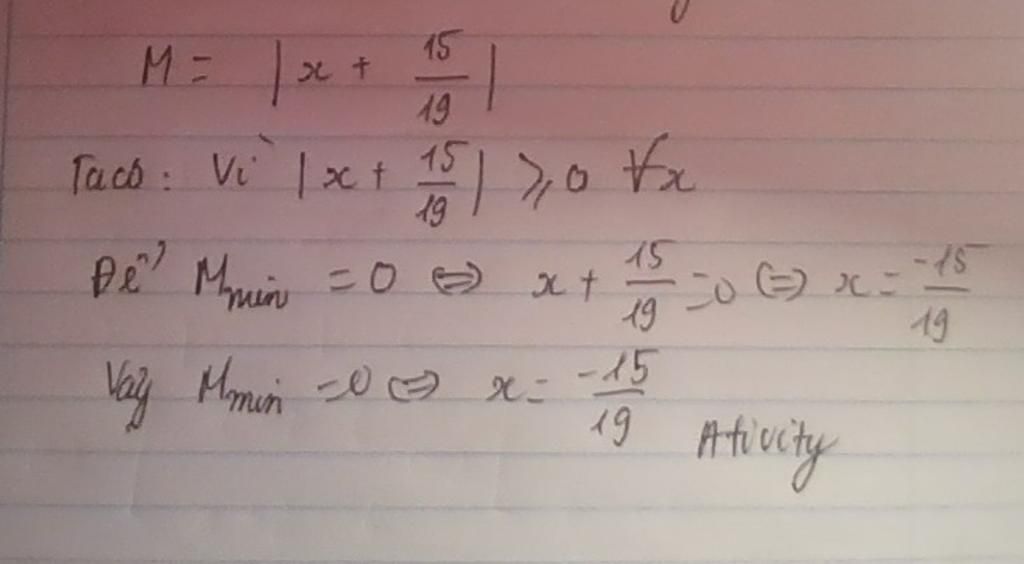 M = |x + 15/19|
Ta có: Vì |x + 15/19| ⩾ 0 ∀x
Để M min = 0 ⇔ x + 15/19 = 0 ⇔ x = -15/19
Vậy M min = 0 ⇔ x = -15/19
Ativity